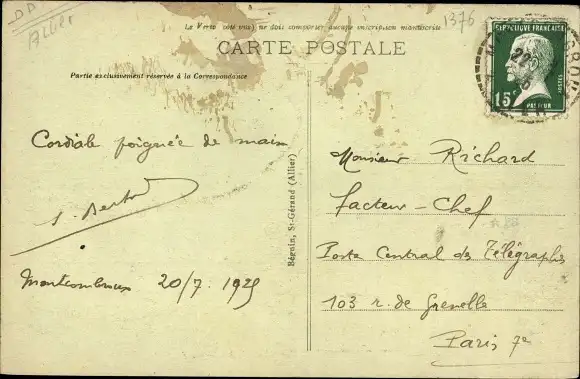 DD
Allier
Le Verso (côté vue) ne doit comporter aucune inscription manuscrite
1376
CARTE POSTALE
Partie exclusivement réservée à la Correspondance
RÉPUBLIQUE FRANÇAISE
POSTES
15c
PASTEUR
Cordiale poignée de main
Montcombroux 20/7 1925
Béguin, St-Gérand (Allier)
Monsieur Richard
facteur-Chef
Poste Central des Télégraphes
103 r. de Grenelle
Paris 7e